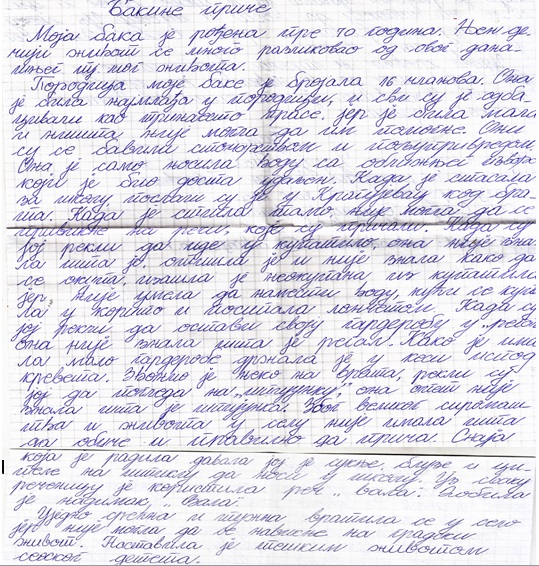 Бакине приче
Моја бака је рођена пре 70 година. Њен де-
чији живот се много разликовао од овог дана-
шњег тј мог живота.
Породица моје баке је бројала 16 чланова. Она
је била најмлађа у породици, и сви су је одба-
цивали као тринаесто прасе, јер је била мала
и ништа није могла да им помогне. Они
су се бавили сточарством и пољопривредом.
Она је само носила воду са оближњег извора
који је био доста удаљен. Када је стасала
за школу, послали су је у Крагујевац код бра-
та. Када је стигла тамо, није могла да се
привикне на речи, које су причали. Када су
јој рекли да иде у купатило, она није зна-
ла шта је. отишла је и није знала како да
се окупа, изашла је неокупана из купатила
јер, није умела да намести воду, кући се купа-
ла у кориту и посипала лончетом. Када су
јој рекли да остави своју гардеробу у „регал"
она није знала шта је регал. Како је има-
ла мало гардеробе држала је у кеси испод
кревета. Звонио је неко на врата, рекли су
јој да погледа на „шпијунку", она опет није
знала шта је шпијунка. Због великог сиромаш-
тва и живота у селу није имала шта
да обуче и правилно да прича. Снаја
која је радила давала јој је сукње, блузе и ци-
пеле на штиклу да носи у школу. Уз сваку
реченицу је користила реч „вала". Добила
је надимак „Вала".
Уједно срећна и тужна вратила се у село
јер није могла да се навикне на градски
живот. Наставила је тешким животом
сеоског детета.